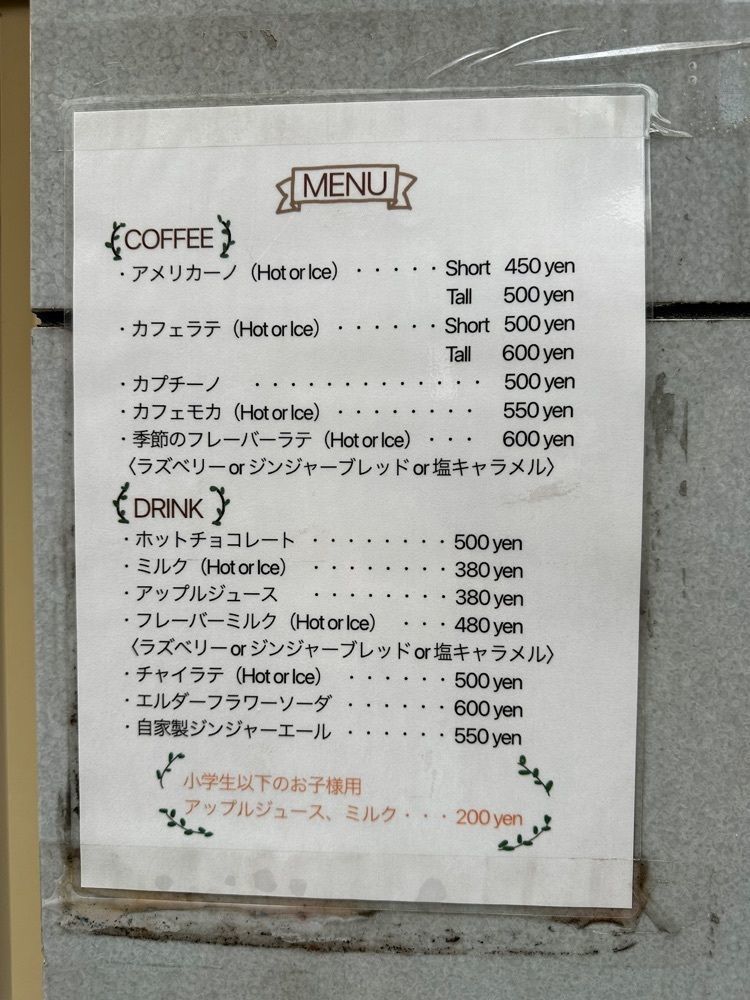 MENU
COFFEE
・アメリカーノ（Hot or Ice）・・・・・Short 450 yen
Tall 500 yen
・カフェラテ（Hot or Ice）・・・・・・Short 500 yen
Tall 600 yen
・カプチーノ ・・・・・・・・・・・・ 500 yen
・カフェモカ（Hot or Ice）・・・・・・・・ 550 yen
・季節のフレーバーラテ（Hot or Ice）・・・ 600 yen
〈ラズベリー or ジンジャーブレッド or 塩キャラメル〉
DRINK
・ホットチョコレート ・・・・・・・・500 yen
・ミルク（Hot or Ice） ・・・・・・・・380 yen
・アップルジュース ・・・・・・・・380 yen
・フレーバーミルク（Hot or Ice） ・・・480 yen
〈ラズベリー or ジンジャーブレッド or 塩キャラメル〉
・チャイラテ（Hot or Ice） ・・・・・・500 yen
・エルダーフラワーソーダ ・・・・・・600 yen
・自家製ジンジャーエール ・・・・・・550 yen
小学生以下のお子様用
アップルジュース、ミルク・・・200 yen